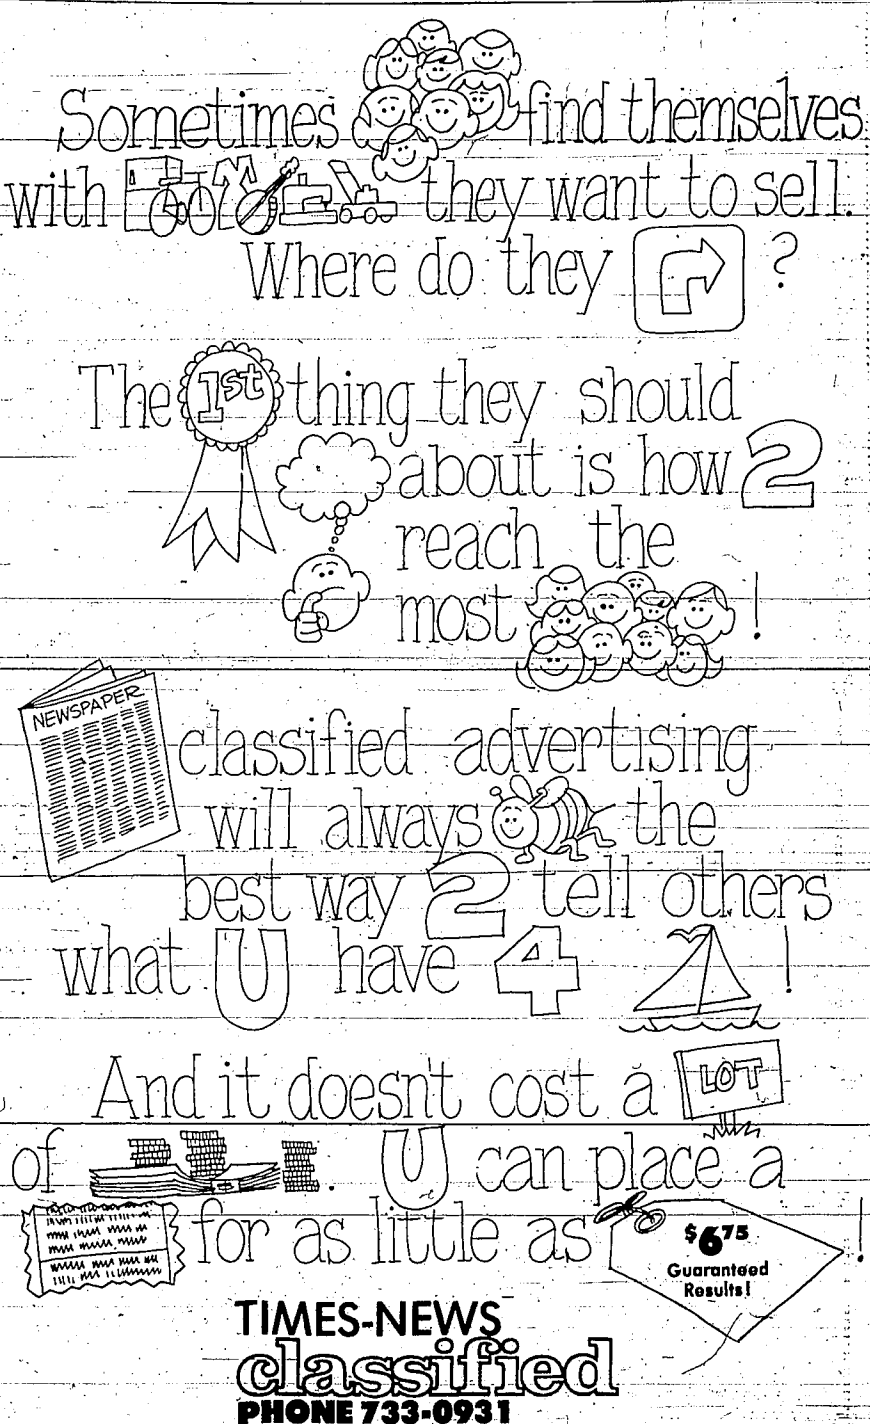 Sometimes find themselves
with they want to sell.
Where do they ?
The 1st thing they should
about is how 2
reach the
most !
NEWSPAPER
classified advertising
will always the
best way 2 tell others
what U have 4 !
And it doesn't cost a LOT
of . U can place a
for as little as !
$6.75
Guaranteed
Results!
TIMES-NEWS
classified
PHONE 733-0931